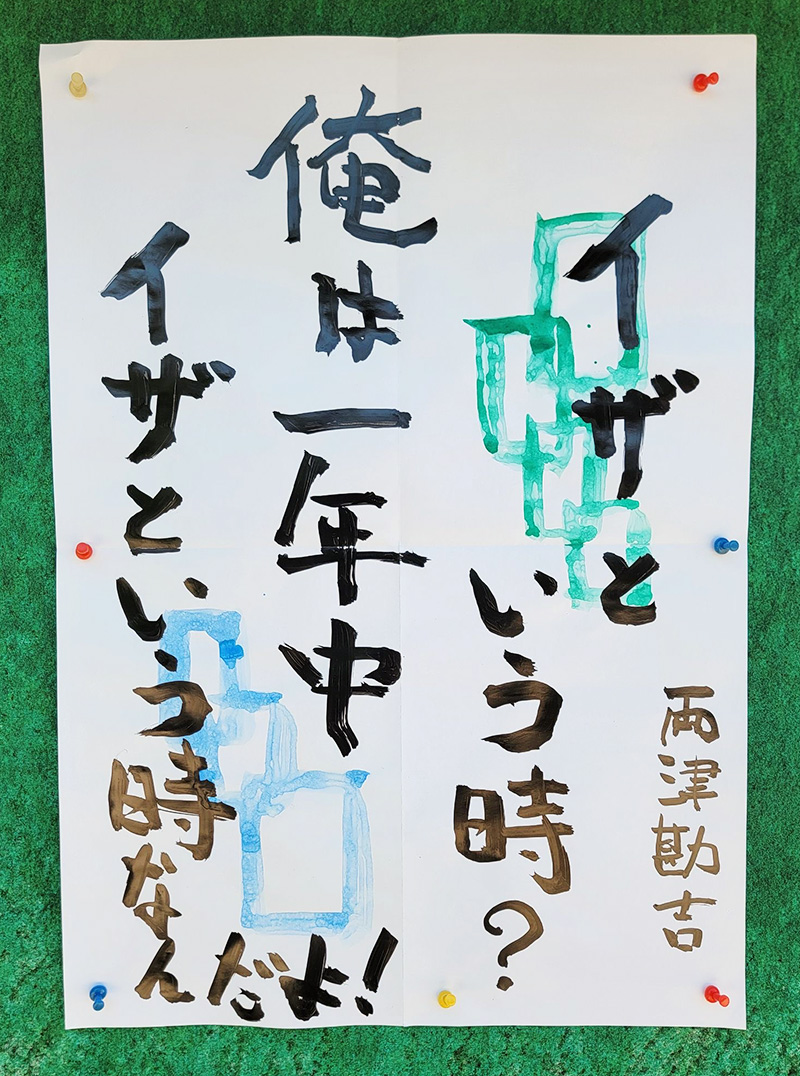 イザと
いう時?
俺は一年中
イザという時なん
だよ!
両津勘吉